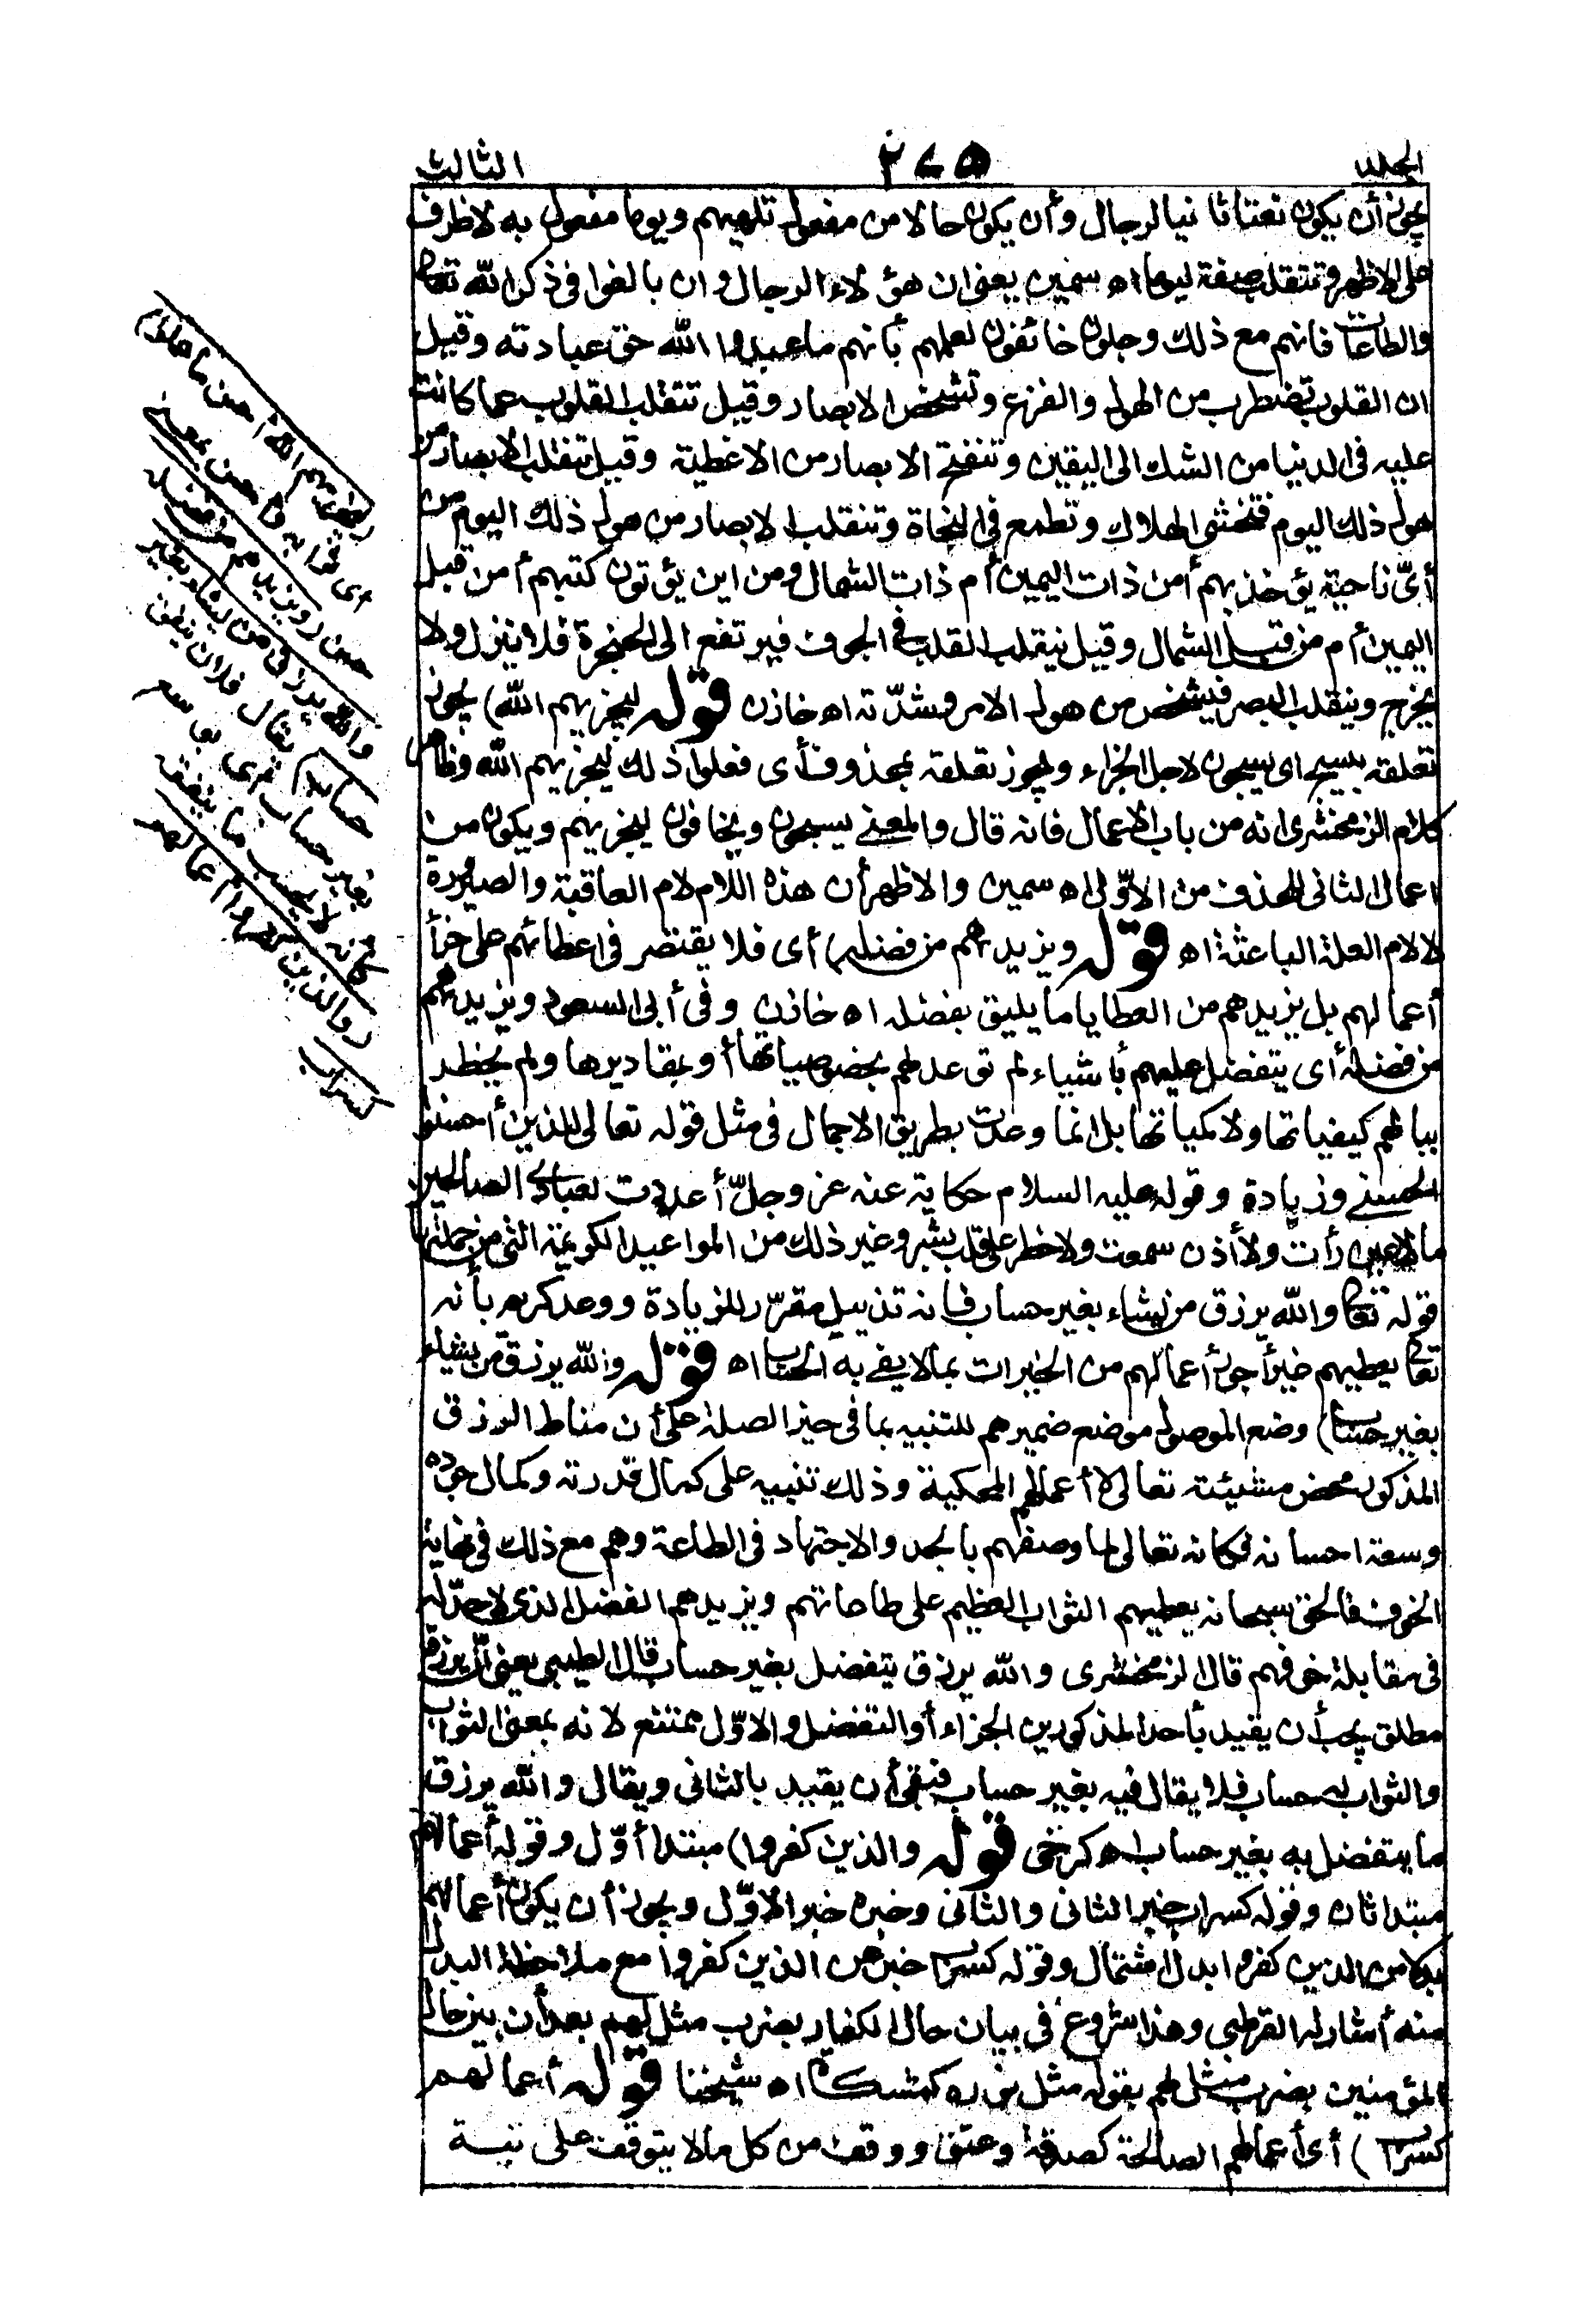 الجلد ٢٧٥ الثالث
يجوز أن يكون نعتا ثانيا لرجال وأن يكون حالا من مفعول تلهيهم ويوما مفعول به لا ظرف
على الاظهر وتتقلب صفة ليوما اه سمين يعنى ان هؤلاء الرجال وان بالغوا فى ذكر الله تعالى
والطاعات فانهم مع ذلك وجلون خائفون لعلمهم بأنهم ما عبدوا الله حق عبادته وقيل
ان القلوب تضطرب من الهول والفزع وتشخص الابصار وقيل تتقلب القلوب عما كانت
عليه فى الدنيا من الشك الى اليقين وتنفتح الابصار من الاغطية وقيل تتقلب الابصار من
هول ذلك اليوم فتخشى الهلاك وتطمع فى النجاة وتتقلب الابصار من هول ذلك اليوم من
أىّ ناحية يؤخذ بهم أمن ذات اليمين أم ذات الشمال ومن اين يؤتون كتبهم أمن قبل
اليمين أم من قبل الشمال وقيل يتقلب القلب فى الجوف فيرتفع الى الحنجرة فلا ينزل ولا
يخرج ويتقلب البصر فيشخص من هول الامر وشدّته اه خازن قوله ليجزيهم الله) يجوز
تعلقه بيسبح اى يسبحون لاجل الجزاء ويجوز تعلقه بمحذوف أى فعلوا ذلك ليجزيهم الله وظاهر
كلام الزمخشرى انه من باب الاعمال فانه قال والمعنى يسبحون ويخافون ليجزيهم ويكون من
اعمال الثانى للحذف من الاوّل اه سمين والاظهر أن هذه اللام لام العاقبة والصيرورة
لا لام العلة الباعثة اه قوله ويزيدهم من فضله) أى فلا يقتصر فى اعطائهم على جزأ
أعمالهم بل يزيدهم من العطايا ما يليق بفضله اه خازن وفى أبى السعود ويزيدهم
من فضله أى يتفضل عليهم بأشياء لم توعد لهم بخصوصياتها أو بمقاديرها ولم يخطر
ببالهم كيفياتها ولا كمياتها بل انما وعدت بطريق الاجمال فى مثل قوله تعالى للذين أحسنوا
الحسنى وزيادة وقوله عليه السلام حكاية عنه عز وجلّ أعددت لعبادى الصالحين
ما لا عين رأت ولا أذن سمعت ولا خطر على قلب بشر وغير ذلك من المواعيد الكريمة التى من جملتها
قوله تعالى والله يرزق من يشاء بغير حساب فانه تذييل مقرّر للزيادة ووعد كريم بأنه
تعالى يعطيهم غير أجور أعمالهم من الخيرات بما لا يفى به الحساب اه قوله والله يرزق من يشاء
بغير حساب) وضع الموصول موضع ضميرهم للتنبيه بما فى حيز الصلة على أن مناط الرزق
المذكور محض مشيئته تعالى لا أعمالهم المحكية وذلك تنبيه على كمال قدرته وكمال جوده
وسعة احسانه فكانه تعالى لما وصفهم بالجد والاجتهاد فى الطاعة وهم مع ذلك فى نهاية
الخوف فالحق سبحانه يعطيهم الثواب العظيم على طاعاتهم ويزيدهم الفضل الذى لا حدّ له
فى مقابلة خوفهم قال الزمخشرى والله يرزق يتفضل بغير حساب قال الطيبى يعنى أن يرزق
مطلق يجب أن يقيد بأحد المذكورين الجزاء أو التفضل والاوّل ممتنع لانه بمعنى الثواب
والثواب له حساب فلا يقال فيه بغير حساب فبقى أن يقيد بالثانى ويقال والله يرزق
ما يتفضل به بغير حساب اه كرخى قوله والذين كفروا) مبتدا أوّل وقوله أعمالهم
مبتدا ثان وقوله كسراب خبر الثانى والثانى وخبره خبر الاوّل ويجوز أن يكون أعمالهم
بدلا من الذين كفروا بدل اشتمال وقوله كسراب خبر عن الذين كفروا مع ملاحظة البدل
منه أشار له القرطبى وهذا شروع فى بيان حال الكفار بضرب مثل لهم بعد أن بين حال
المؤمنين بضرب مثل لهم بقوله مثل نوره كمشكاة اه شيخنا قوله أعمالهم
كسراب) أى أعمالهم الصالحة كصدقة وعتق ووقف من كل ما لا يتوقف على نية
ليجزيهم الله أحسن ما عملوا)
أى ثوابه وأحسن بمعنى
حسن (ويزيدهم من فضله
والله يرزق من يشاء بغير
حساب) يقال فلان ينفق
بغير حساب أى يوسع
كأنه لا يحسب ما ينفقه
(والذين كفروا أعمالهم
كسراب